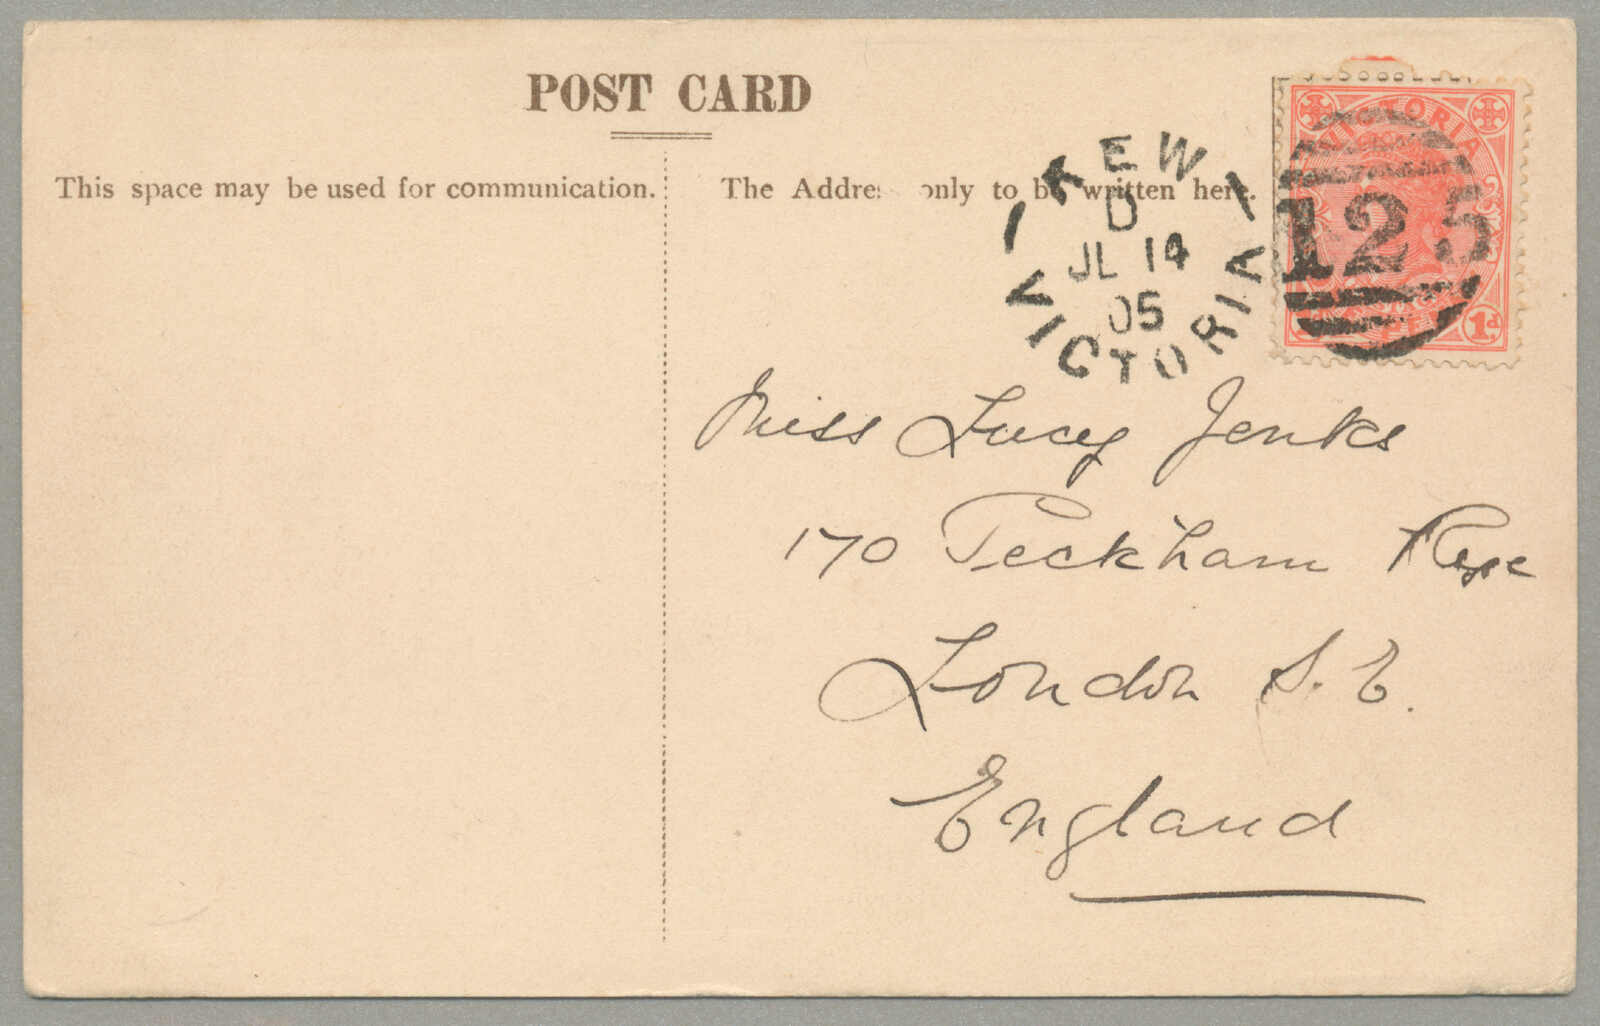 POST CARD
This space may be used for communication.
The Addres only to be written here.
KEW
D
JL 14
05
VICTORIA
VICTORIA
125
1d
Miss Lucy Jenks
170 Peckham Rye
London S.E.
England